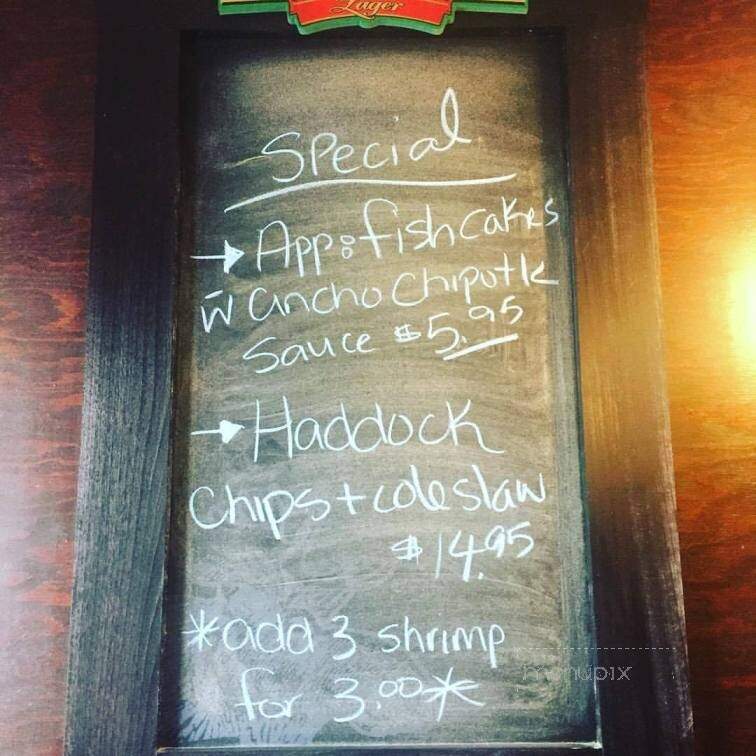 Lager
Special
→ App: fish cakes
w̄ ancho Chipotle
Sauce $5.95
→ Haddock
Chips + coleslaw
$14.95
*add 3 shrimp
for 3.00*
menupix